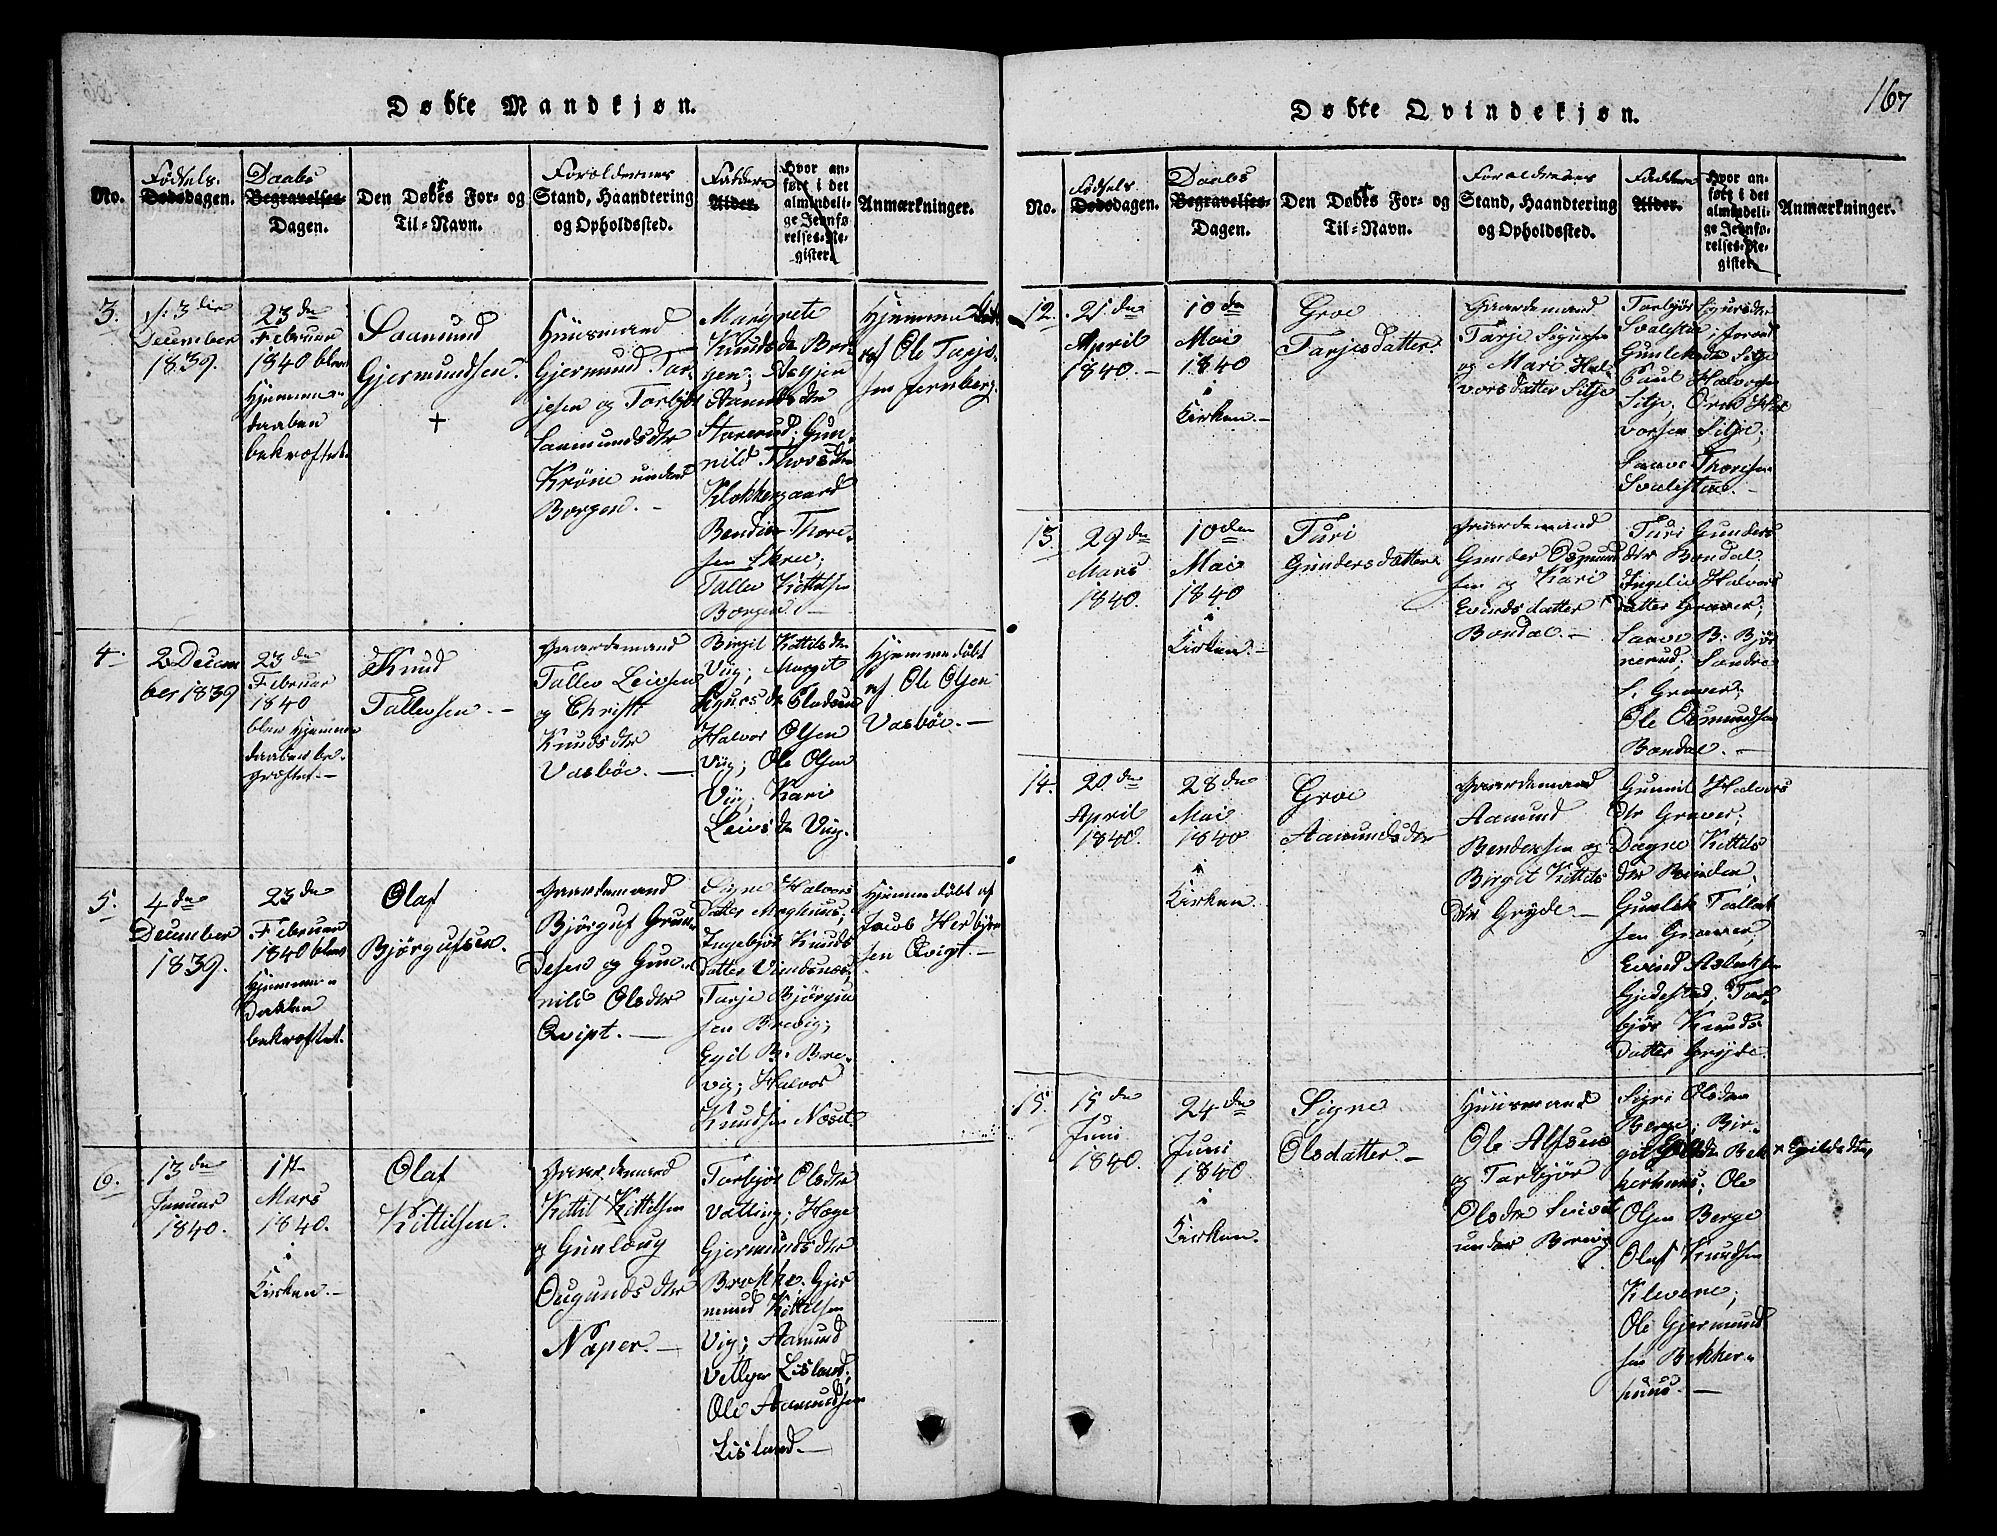 167
Døbte Mandkjøn.
No.
Fødsels-
Dødsdagen.
Daabs
Begravelses-
Dagen.
Den Døbtes For- og
Til-Navn.
Foreldrenes
Stand, Haandtering
og Opholdssted.
Faddere
Alder.
Hvor an-
ført i det
almindeli-
ge Jevnfø-
relses-Re-
gister.
Anmærkninger.
3.
13die
December
1839.
23de
Februar
1840 blev
Hjemme-
daaben
bekræftet.
Saamund
Gjermundsen.
+
Huusmand
Gjermund Tar-
jesen og Torbjør
Saamundsdtr
Krøne under
Borgen.
Margrete
Knudsdr Bor-
gen;
Aamundsdtr
Stærerud; Gun-
nild Thorsdtr
Klokkergaard
Bendix Thore-
sen Skree;
Tallev Kittelsen
Borgen.
Hjemmedøbt
af Ole Tarje-
sen Jernberg.
4.
2 Decem
ber 1839
23de
Februar
1840
blev Hjemme
daaben be-
kræftet.
Knud
Tallevsen.
Gaardemand
Tallev Leivsen
og Christi
Knudsdtr
Vasböe.
Birgit Kittilsdtr
Viig; Margit
Sigursdtr
Halvor Olsen
Viig; Ole Olsen
Viig; Kari
Leivsdr Viig.
Hjemmedøbt
af Ole Olsen
Vasböe.
5.
4de
December
1839.
23de
Februar
1840 blev
Hjemme-
daaben
bekræftet.
Olaf
Bjørgufsen.
Gaardemand
Bjørguf Grun-
desen og Gun-
nild Olsdtr
Qvipt.
Signe Halvors
datter
Ingebjør Knuds
datter
Tarje Bjørgu
sen Brevig;
Egil B. Bre-
vig; Halvor
Knudsen Næset
Hjemmedøbt af
Jacob Herbjørn
sen Qvigt.
6.
13de
Januar
1840.
1st
Mars
1840.
i
Kirken.
Olaf
Kittilsen.
Gaardemand
Kittil Kittilsen
og Gunloug
Ougundsdtr
Næper.
Torbjør Olsdtr
Vatting; Hæge
Gjermundsdtr
Brokke. Gjer
mund Kittelsen
Viig; Aamund
Lisland;
Ole Aamundsen
Lisland.
Døbte Qvindekjøn.
No.
Fødsels
Dødsdagen.
Daabs
Begravelses-
Dagen.
Den Døbtes For- og
Til-Navn.
Foreldrenes
Stand, Haandtering
og Opholdssted.
Faddere
Alder.
Hvor an-
ført i det
almindeli-
ge Jevnfø-
relses-Re-
gister.
Anmærkninger.
12.
21de
April
1840.
10de
Mai
1840
i
Kirken.
Groe
Tarjesdatter.
Gaardemand
Tarje Sigurs
og Mari Hal-
vorsdatter Sitje
Torbjør Sigursdtr
Svalestøe;
Gunlek Sitje
Paul Halvorsen
Sitje, Orm Hal
vorsen Sitje;
Saave Thoresen
Svalestøe.
13.
29de
Mars
1840.
10den
Mai
1840
i
Kirken.
Turi
Gundersdatter
Gaardemand
Gunder Osmund
sen og Kari
Evindsdatter
Bondal.
Turi Gunders
dtr Bondal,
Ingelev Halvors
datter Graver;
Saave B. Bjør
nerud; Sandre
S. Graver.
Ole Osmundsen
Bondal.
14.
20de
April
1840.
28de
Mai
1840
i
Kirken.
Groe
Aamundsdtr
Gaardemand
Aamund
Bendixsen og
Birgit Kittils
dtr Gryde.
Gunnil Halvors
dtr Graver;
Dagne Kittils
dtr Rinden;
Gunlek Tallak
sen Graver;
Evind Aslaksen
Gjedestad; Tor-
bjør Knuds
datter Gryde.
15.
15de
Juni
1840.
24de
Juni
1840.
i
Kirken.
Signe
Olsdatter.
Huusmand
Ole Alfsen
og Torbjør
Olsdtr
under Brevig
Sigri Olsdtr
Berge; Bir-
git Bek
kerhuus; Ole
Olsen Berge
Olaf Knudsen
Klevene;
Ole Gjermund
sen Bekker-
huus.
x Egilsdtr